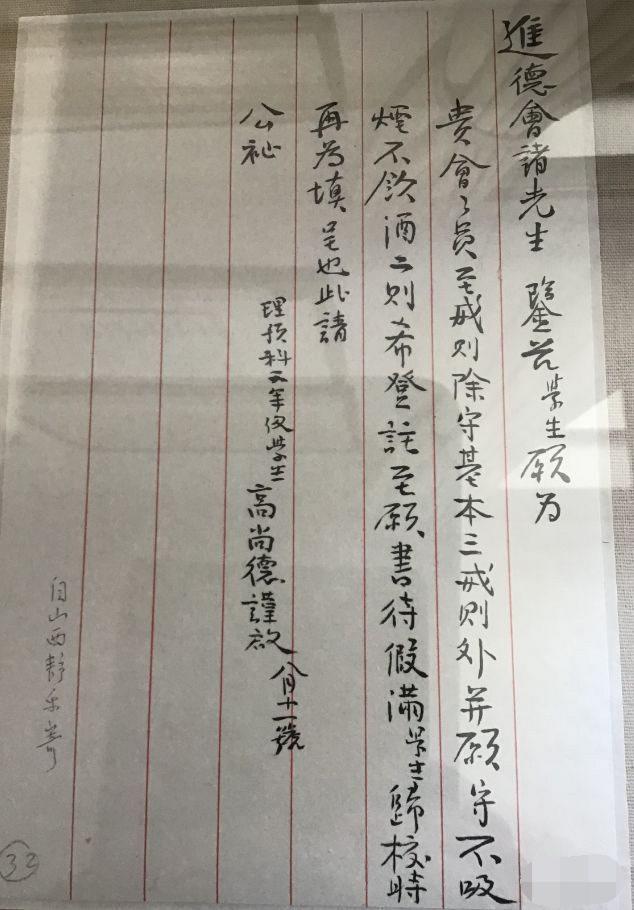 進德會諸先生 鑒茲學生願为
貴會々員至戒則除守基本三戒則外并願守不吸
煙不飲酒二則希登註至願書待假滿學生歸校時
再為填呈也此請
公祉
理預科二年仅學生 高尚德謹啟 八月十一號
自山西靜乐寄
32